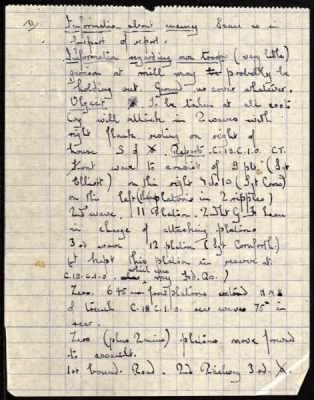 Information about enemy Same as in
report of report.
Information regarding own troops (very little)
garrison at mill may probably be
holding out. Ground no cover whatever.
Object X. To be taken at all costs
Coy will attack in 2 waves with
right flank resting on right of
house S of X. Reports C.12.C.1.0 CT.
Front wave to consist of 9 pltn (Sgt
Elliott) on the right & 10 (Sgt
on the left (platoons in 2 ripples)
2nd wave. 11 Platoon.
in charge of attacking platoons
3rd wave 12 platoon (Sgt Cornforth)
(I kept this platoon in reserve at
C.12.C.1.0 which was my Hd. Qrs.)
Zero. 6.45 front platoons extend
of trench C.12.C.1.0 rear waves 75 in
rear.
Zero (plus 2 mins) platoons move forward
to assault.
1st bound. Road. 2nd Railway 3rd. X.